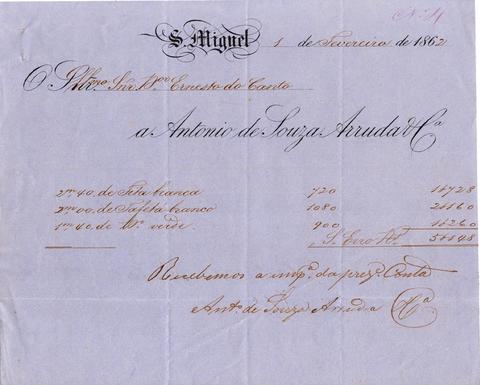 Nº 4
S. Miguel 1 de Fevereiro de 1862
O Illmo. Snr. Ernesto do Canto
a Antonio de Souza Arruda & Ca
2m 40. de Seta branca 720 1$728
2m 00 de Tafetá branco 1080 2$160
1m 40 de Do. verde 900 1$260
S. Erro Rs. 5$148
Recebemos a impa. da preze. Conta
Anto. de Souza Arruda & Ca